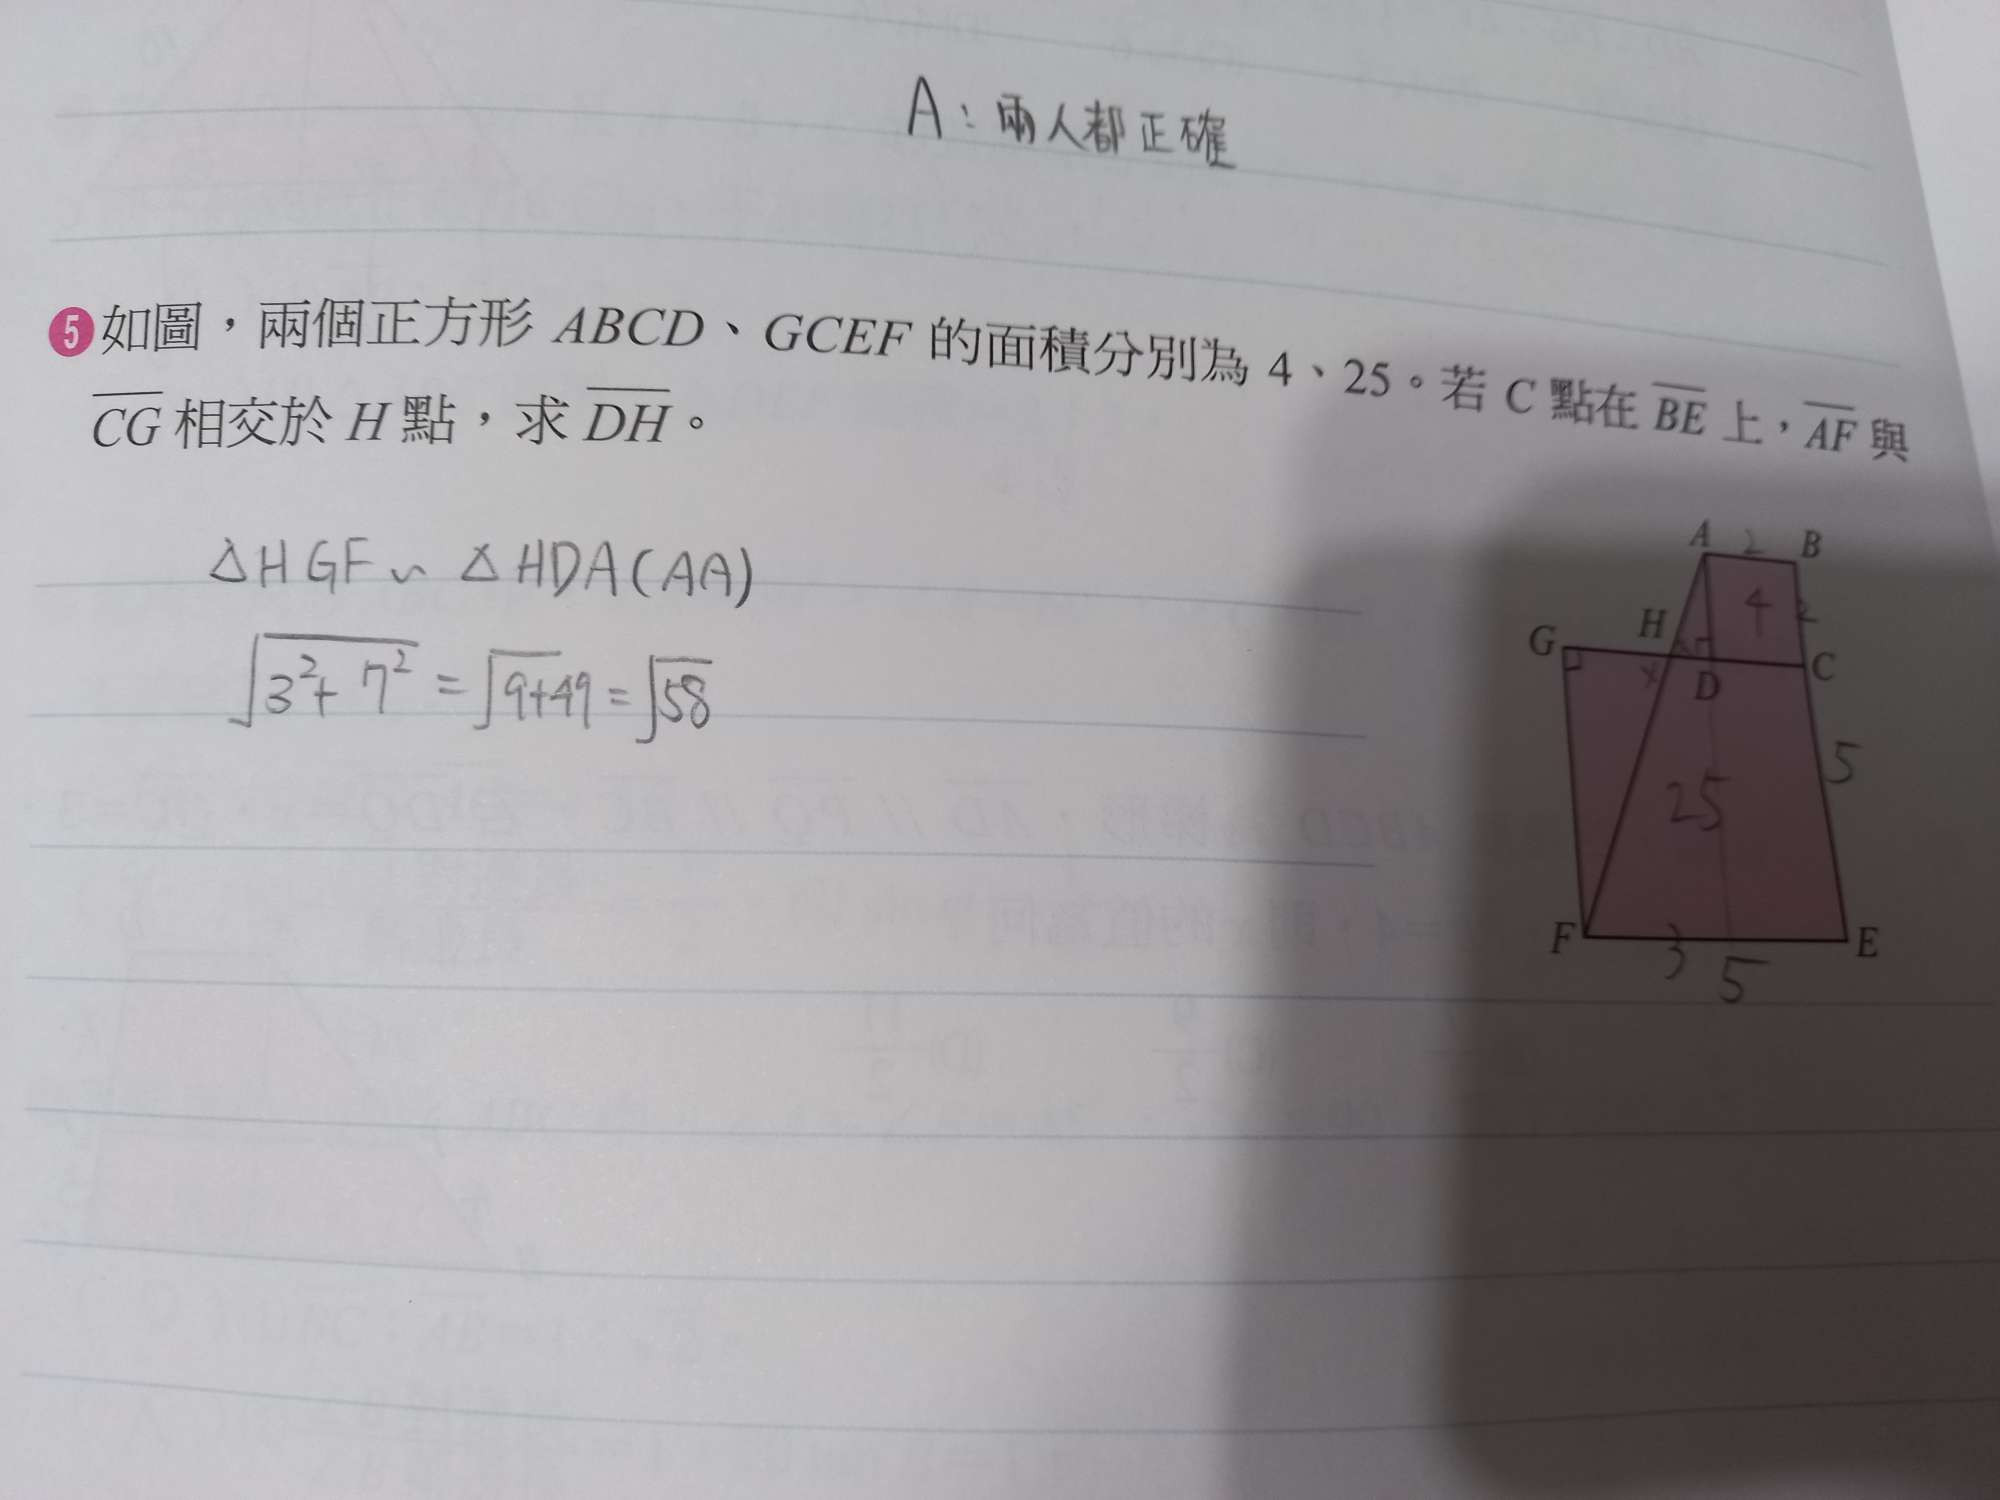 A：兩人都正確
5 如圖，兩個正方形 ABCD、GCEF 的面積分別為 4、25。若 C 點在 BE 上，AF 與
CG 相交於 H 點，求 DH。
△HGF ~ △HDA(AA)
√3²+7² = √9+49 = √58
A 2 B
4 2
G H
x D C
25 5
F E
3 5